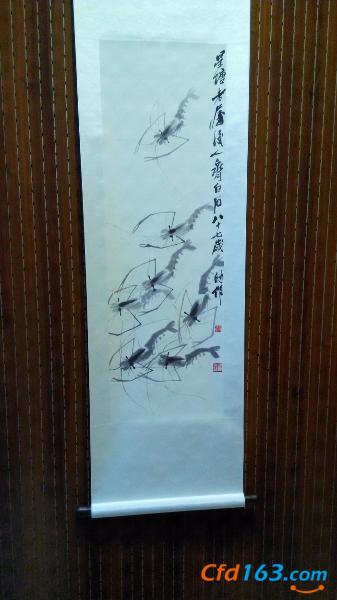 星塘老屋後人齊白石八十七歲時作
Cfd163.com